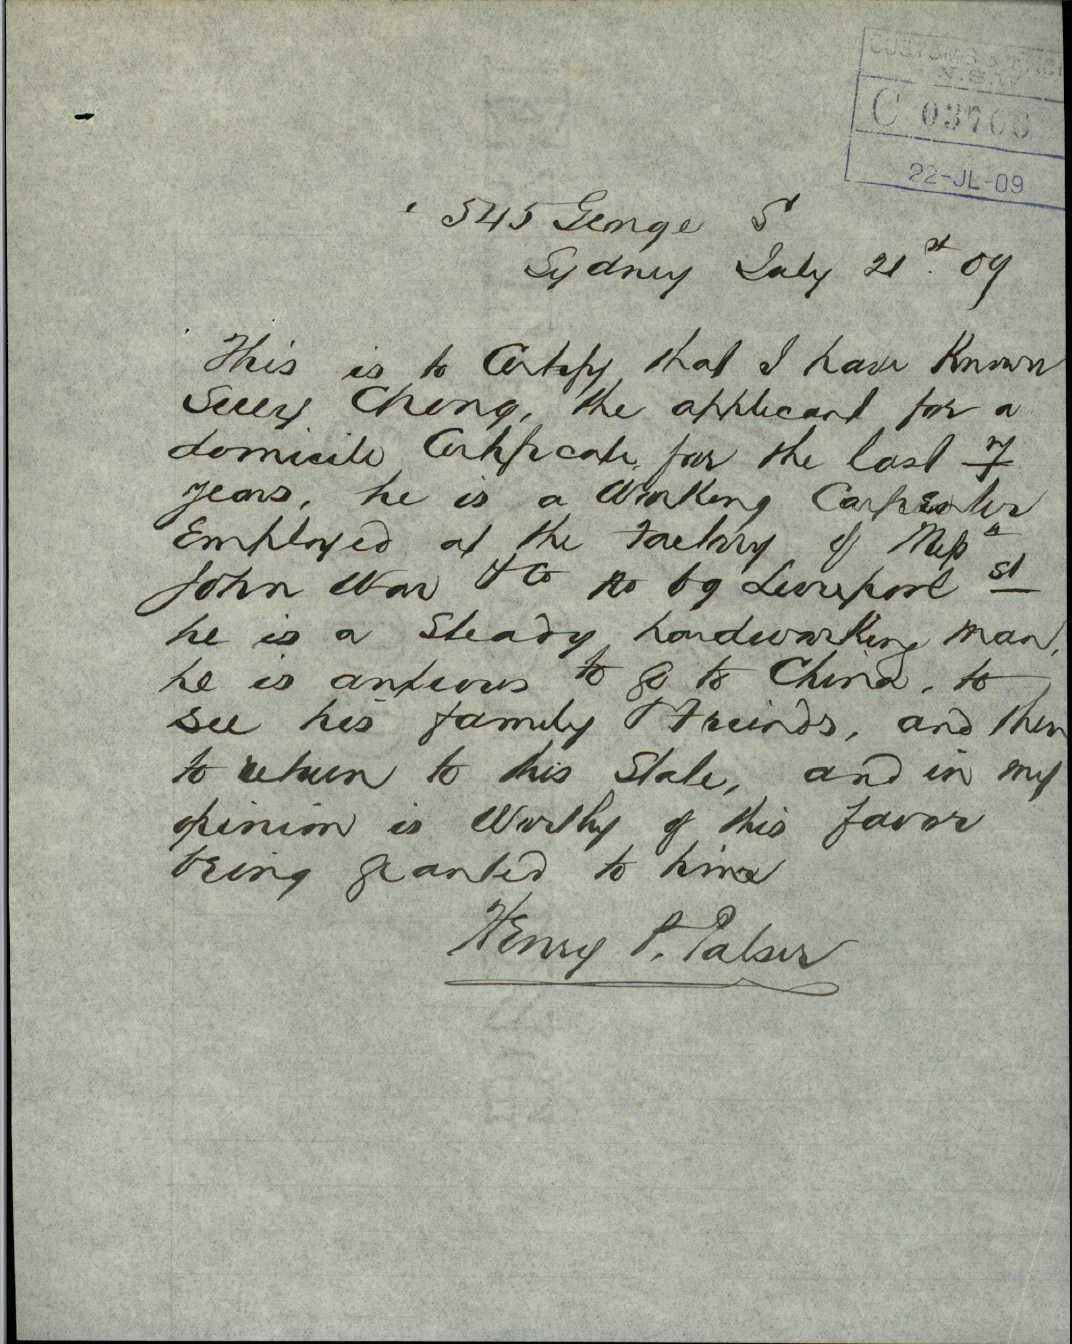 CUSTOMS &
N.S.W.
C 03706
22-JL-09
545 George St
Sydney July 21st. 09
This is to Certify that I have Known
Suey Chong, the applicant for a
domicile Certificate, for the last 7
years, he is a Working Carpenter
Employed at the Factory of Messrs
John War & Co No 69 Liverpool St
he is a Steady hardworking man,
he is anxious to go to China, to
see his family & Freinds, and then
to return to this State, and in my
opinion is Worthy of this favor
being granted to him
Henry P. Palser